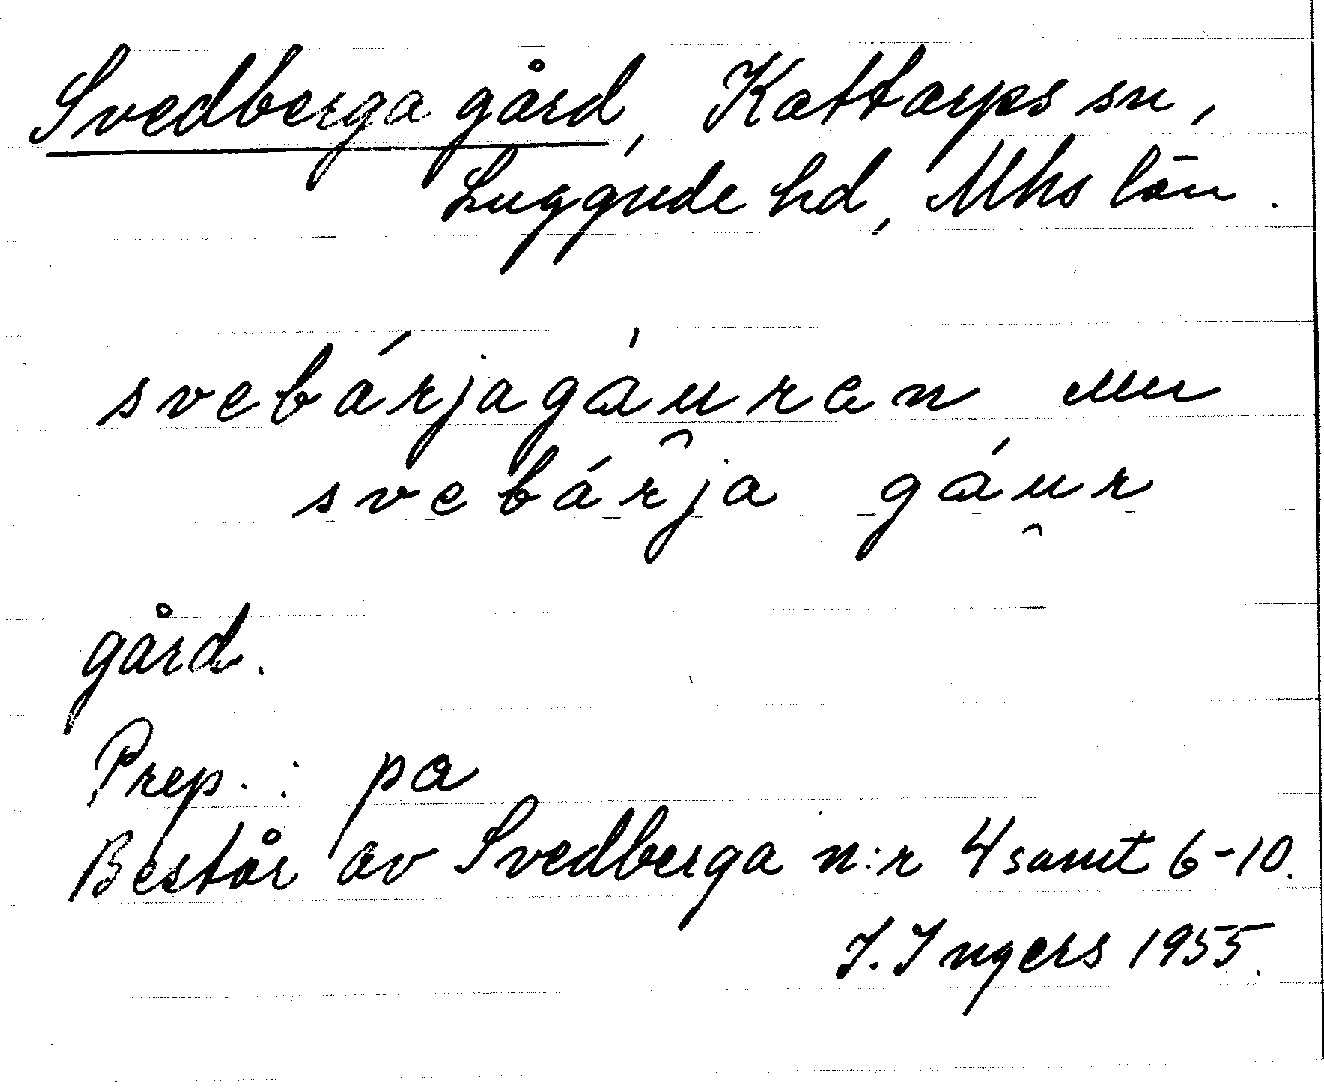 Svedberga gård, Kattarps sn,
Luggude hd, Mhs län.
svebárjagáuran
svebár̂ja gáur
gård.
Prep. : pa
Består av Svedberga n:r 4 samt 6-10.
I. Ingers 1955.